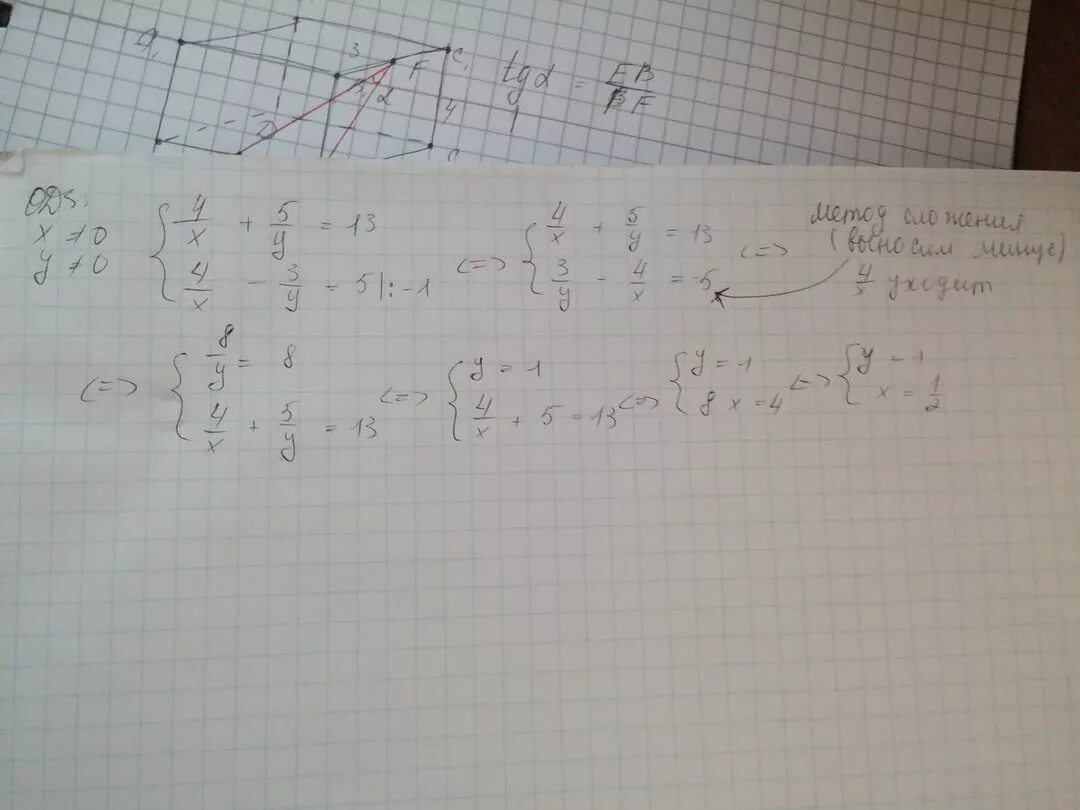 3
F
C₁
4
α
tg α = EB/BF
ОДЗ:
x ≠ 0
y ≠ 0
{ 4/x + 5/y = 13
{ 4/x − 3/y = 5 |: −1
<=> { 4/x + 5/y = 13
{ 3/y − 4/x = −5
<=>
метод сложения
(выносим минус)
4/x уходит
<=> { 8/y = 8
{ 4/x + 5/y = 13
<=> { y = 1
{ 4/x + 5 = 13
<=> { y = 1
{ 8x = 4
<=> { y = 1
{ x = 1/2